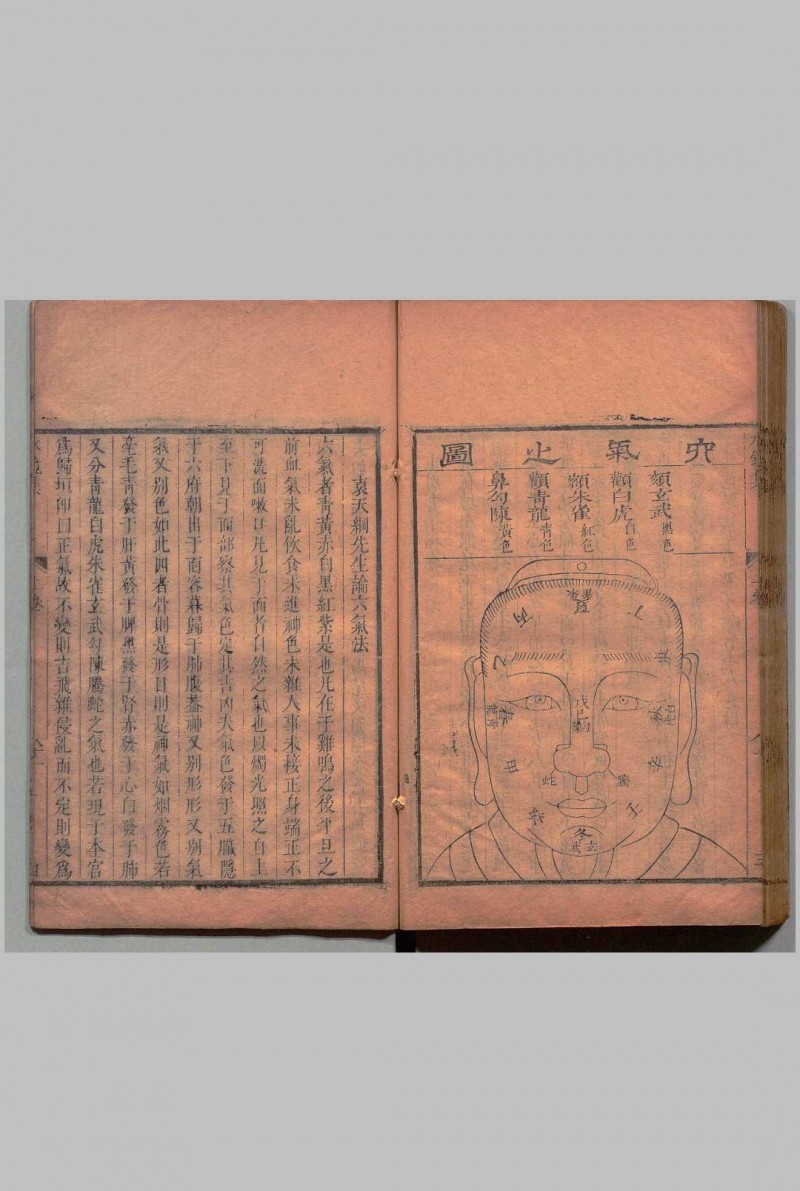 六氣之圖
頦玄武黑色
顴白虎白色
額朱雀紅色
顴青龍青色
鼻勾陳黃色
丙
丁
乙
戊己
蛇
騰
壬
冬
玄武
袁天綱先生論六氣法
六氣者青黃赤白黑紅紫是也凡在于雞鳴之後平旦之
前血氣未亂飲食未進神色未雜人事未接正身端正不
可洗面嗽口凡見于面者自然之氣也以燭光照之自上
至下見于面部察其氣色定其吉凶夫氣色發于五臟隱
于六府朝出于面容暮歸于肺腹蓋神又别形形又别氣
氣又别色如此四者骨則是形目則是神氣如烟霧色若
毫毛青發于肝黃發于脾黑發于腎赤發于心白發于肺
又分青龍白虎朱雀玄武勾陳騰蛇之氣也若現于本宫
爲歸垣即曰正氣故不變則吉飛雜侵亂而不定則變爲